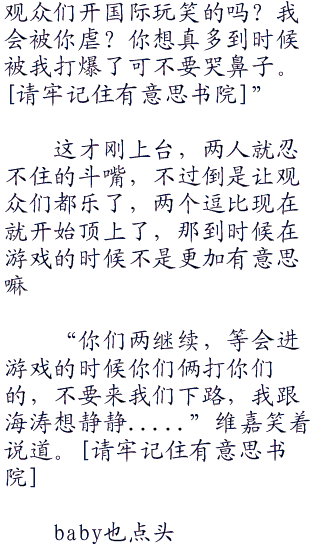 观众们开国际玩笑的吗？我
会被你虐？你想真多到时候
被我打爆了可不要哭鼻子。
[请牢记住有意思书院]”
这才刚上台，两人就忍
不住的斗嘴，不过倒是让观
众们都乐了，两个逗比现在
就开始顶上了，那到时候在
游戏的时候不是更加有意思
嘛
“你们两继续，等会进
游戏的时候你们俩打你们
的，不要来我们下路，我跟
海涛想静静.....”维嘉笑着
说道。[请牢记住有意思书
院]
baby也点头